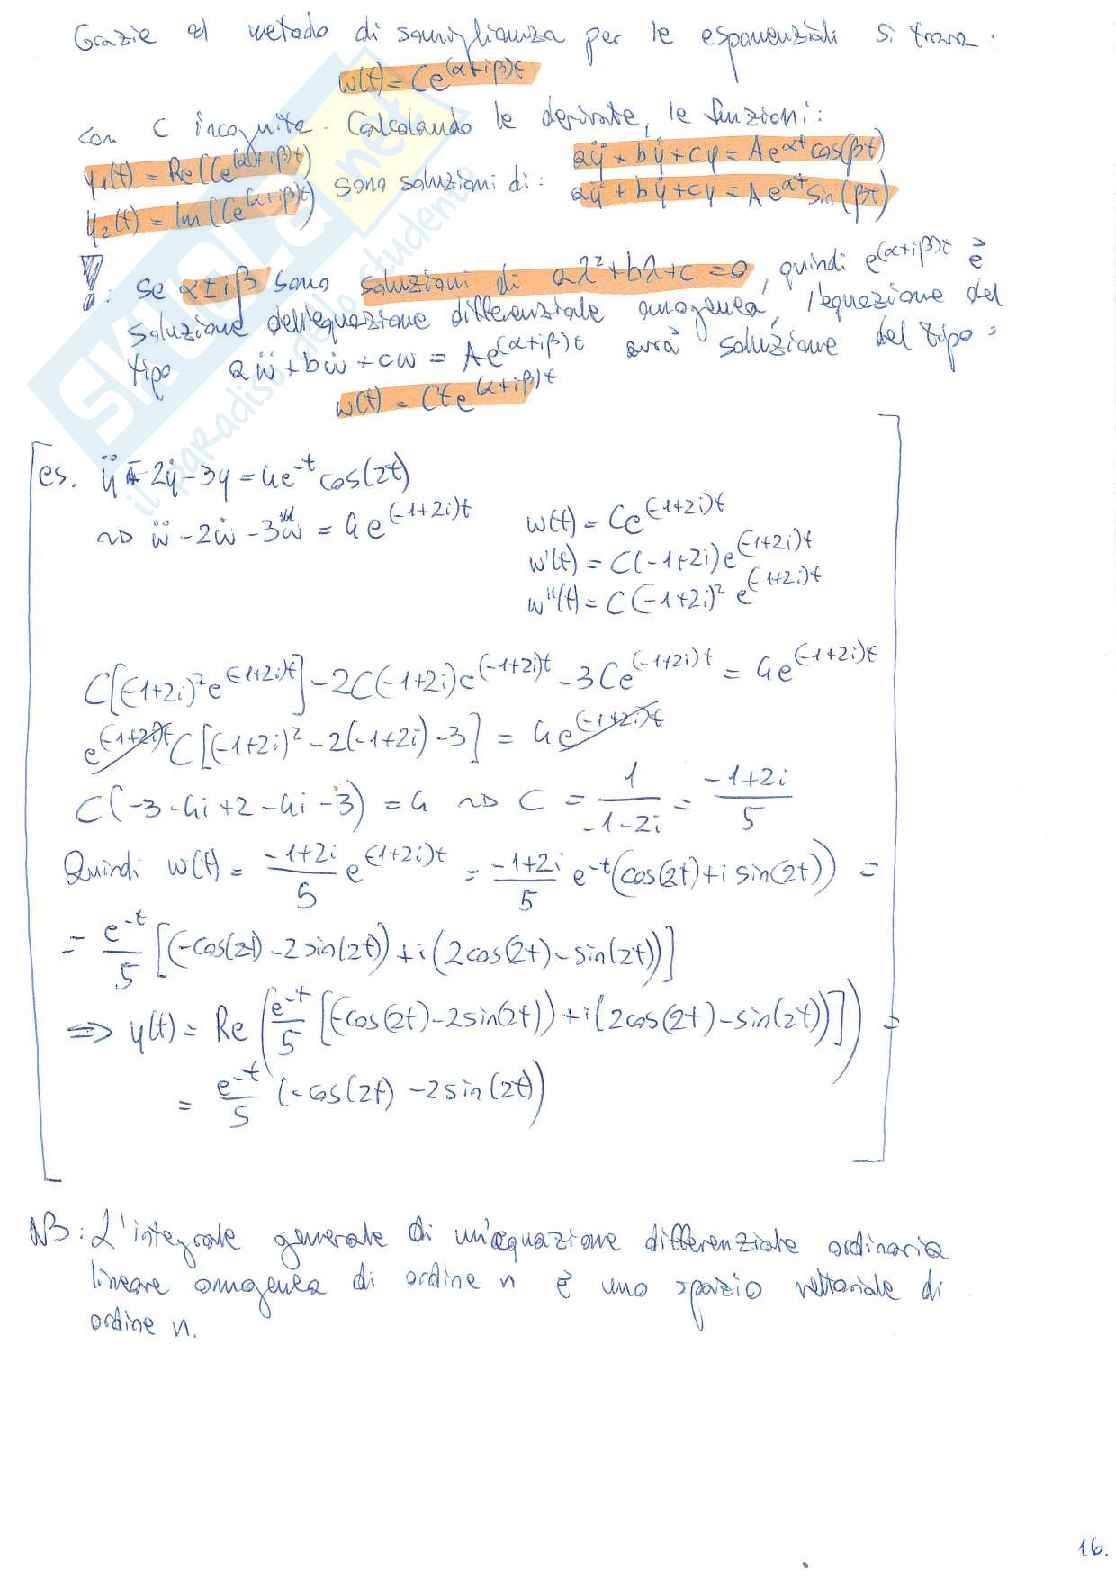 Grazie al metodo di somiglianza per le esponenziali si trova.
w(t) = Ce^(α+iβ)t
con C incognita. Calcolando le derivate, le funzioni:
y₁(t) = Re(Ce^(α+iβ)t) sono soluzioni di: aÿ + bẏ + cy = Ae^αt cos(βt)
y₂(t) = Im(Ce^(α+iβ)t) aÿ + bẏ + cy = Ae^αt sin(βt)
!: se α±iβ sono soluzioni di aλ²+bλ+c=0, quindi e^(α+iβ)t è
soluzione dell'equazione differenziale omogenea, l'equazione del
tipo aẅ + bẇ + cw = Ae^(α+iβ)t avrà soluzione del tipo:
w(t) = Cte^(α+iβ)t
es. ÿ - 2ẏ - 3y = 4e^-t cos(2t)
~> ẅ - 2ẇ - 3w = 4e^(-1+2i)t w(t) = Ce^(-1+2i)t
w'(t) = C(-1+2i)e^(-1+2i)t
w''(t) = C(-1+2i)² e^(-1+2i)t
C[(-1+2i)²e^(-1+2i)t] - 2C(-1+2i)e^(-1+2i)t - 3Ce^(-1+2i)t = 4e^(-1+2i)t
e^(-1+2i)t C[(-1+2i)² - 2(-1+2i) - 3] = 4e^(-1+2i)t
C(-3 - 4i + 2 - 4i - 3) = 4 ~> C = 1/(-1-2i) = (-1+2i)/5
Quindi w(t) = (-1+2i)/5 e^(-1+2i)t = (-1+2i)/5 e^-t(cos(2t) + i sin(2t)) =
= e^-t/5 [(-cos(2t) - 2sin(2t)) + i(2cos(2t) - sin(2t))]
=> y(t) = Re(e^-t/5 [(-cos(2t) - 2sin(2t)) + i(2cos(2t) - sin(2t))]) =
= e^-t/5 (-cos(2t) - 2sin(2t))
NB: L'integrale generale di un'equazione differenziale ordinaria
lineare omogenea di ordine n è uno spazio vettoriale di
ordine n.
16.
SKUOLA.net
il paradiso dello studente